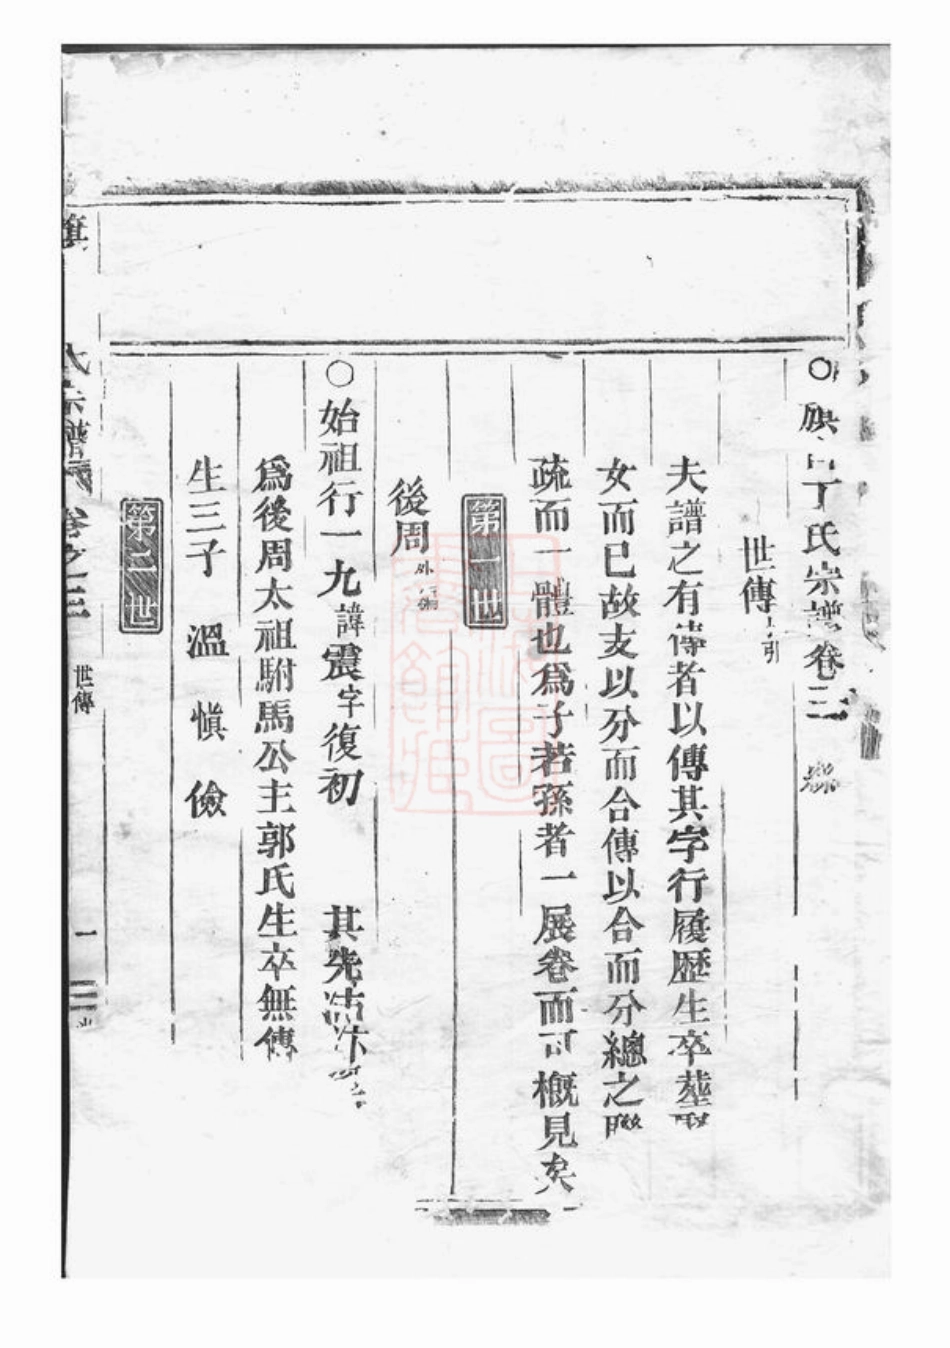 ○旗口丁氏宗譜卷三
世傳引
夫譜之有傳者以傳其字行履歷生卒葬聚
女而已故支以分而合傳以合而分總之聯
疏而一體也爲子若孫者一展卷而可槪見矣
第一世
後周
○始祖行一九諱震字復初 其先沽汴
爲後周太祖駙馬公主郭氏生卒無傳
生三子 溫 愼 儉
第二世
旗 氏宗譜 卷之三 世傳 一